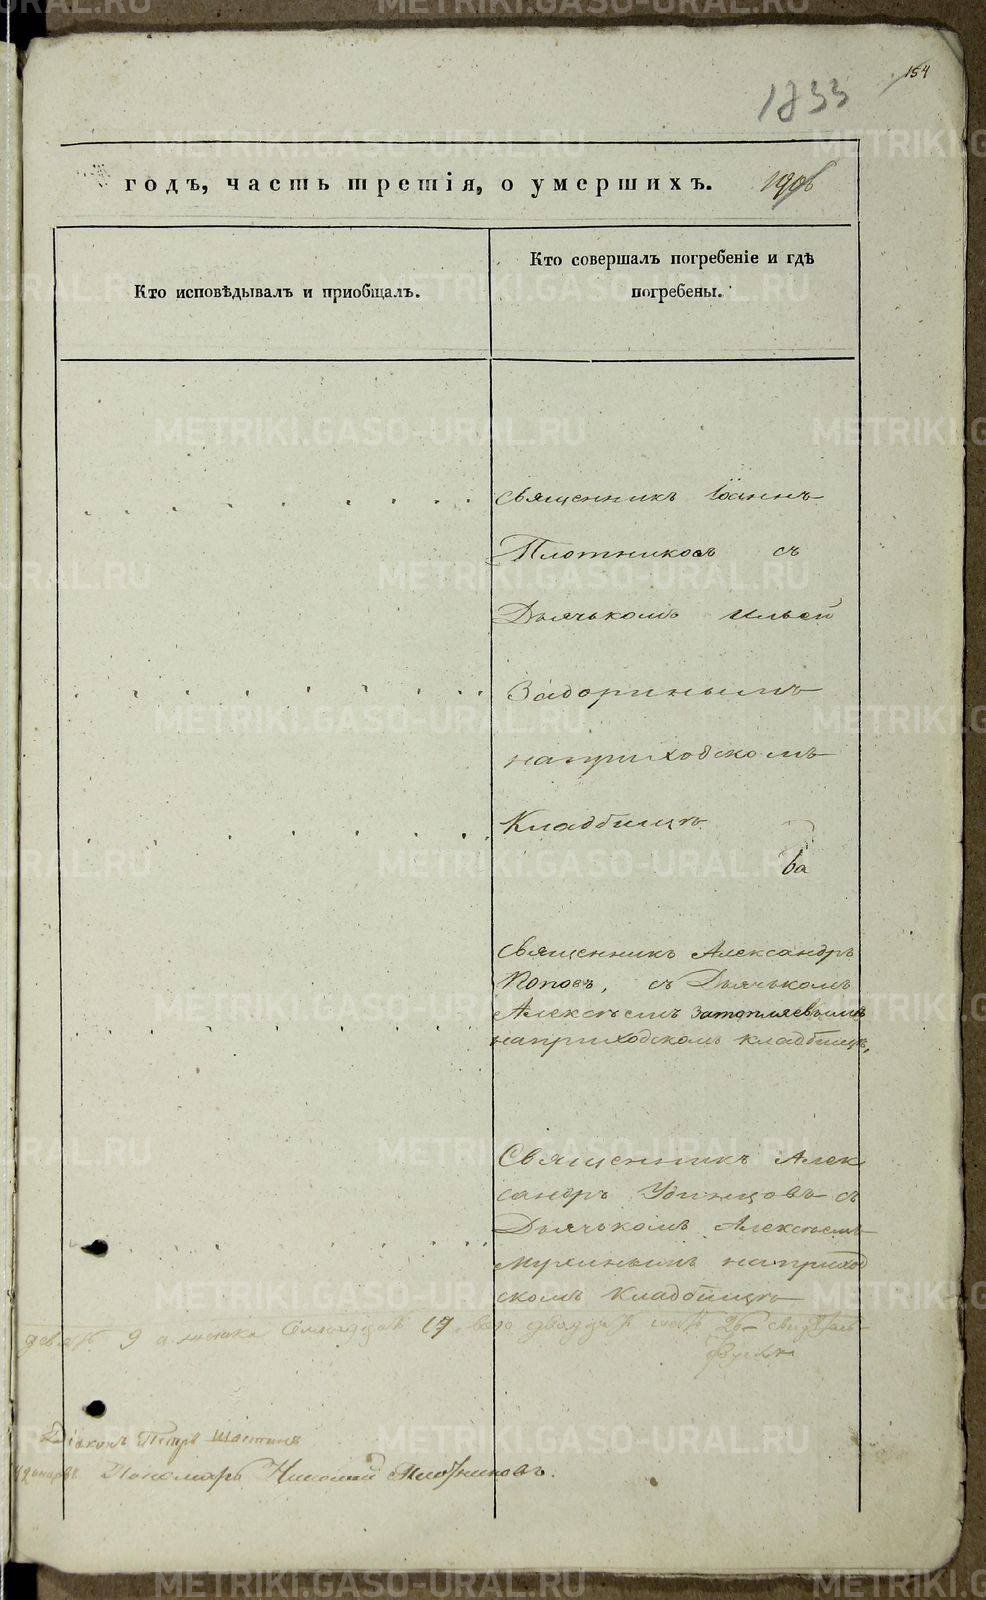 154
1833
годъ, часть третія, о умершихъ.
Кто исповѣдывалъ и приобщалъ.
Кто совершалъ погребеніе и гдѣ
погребены.
Священникъ Іоаннъ
Плотниковъ съ
Дьячькомъ Ильей
Задоринымъ
наприходскомъ
Кладбищѣ
Священникъ Александръ
Поповъ, съ Дьячькомъ
Алексѣемъ Затопляевымъ
наприходскомъ кладбищѣ,
Священникъ Алек
сандръ Удинцовъ съ
Дьячькомъ Алексѣемъ
Мухинымъ наприход
скомъ Кладбищѣ
9 а женска 17
Діаконъ Петръ
Пономарь Николай Плотниковъ.
METRIKI.GASO-URAL.RU